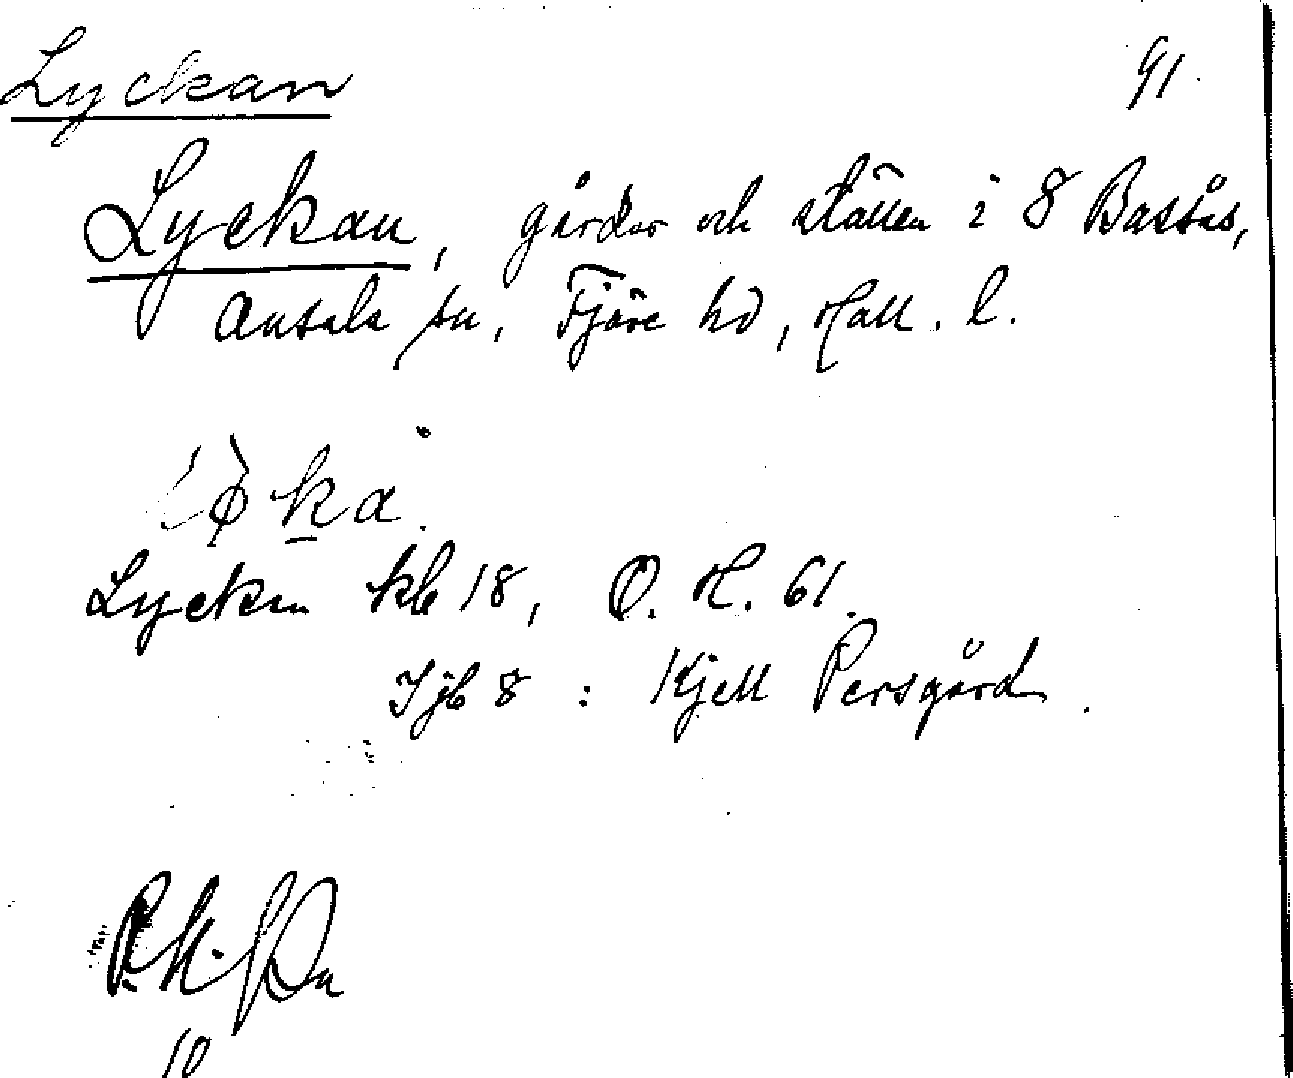 Lyckan 91.
Lyckan, gårdar och ställen i 8 Bassås,
Onsala sn, Fjäre hd, Hall. l.
Lyckan kb 18, O. H. 61.
Jjb 8 : Kjell Persgård.
10